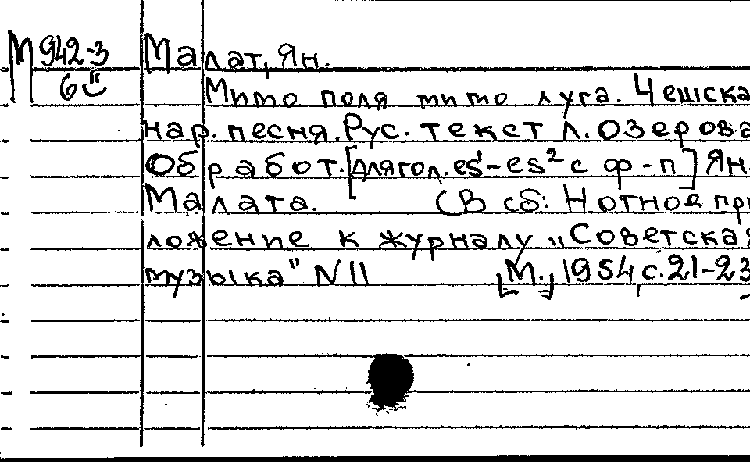 М 942-3 Малат, Ян.
6
Мимо поля мимо луга. Чешска
нар. песня. Рус. текст Л. Озерова
Обработ. [для гол. es¹-es² с ф-п] Ян.
Малата. (В сб: Нотное при
ложение к журналу „Советская
музыка" N 11 [М., 1954, с. 21-23